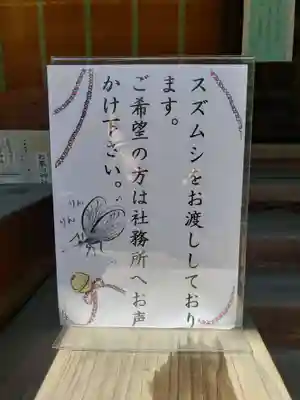 スズムシをお渡ししており
ます。
ご希望の方は社務所へお声
かけ下さい。
りん
りん